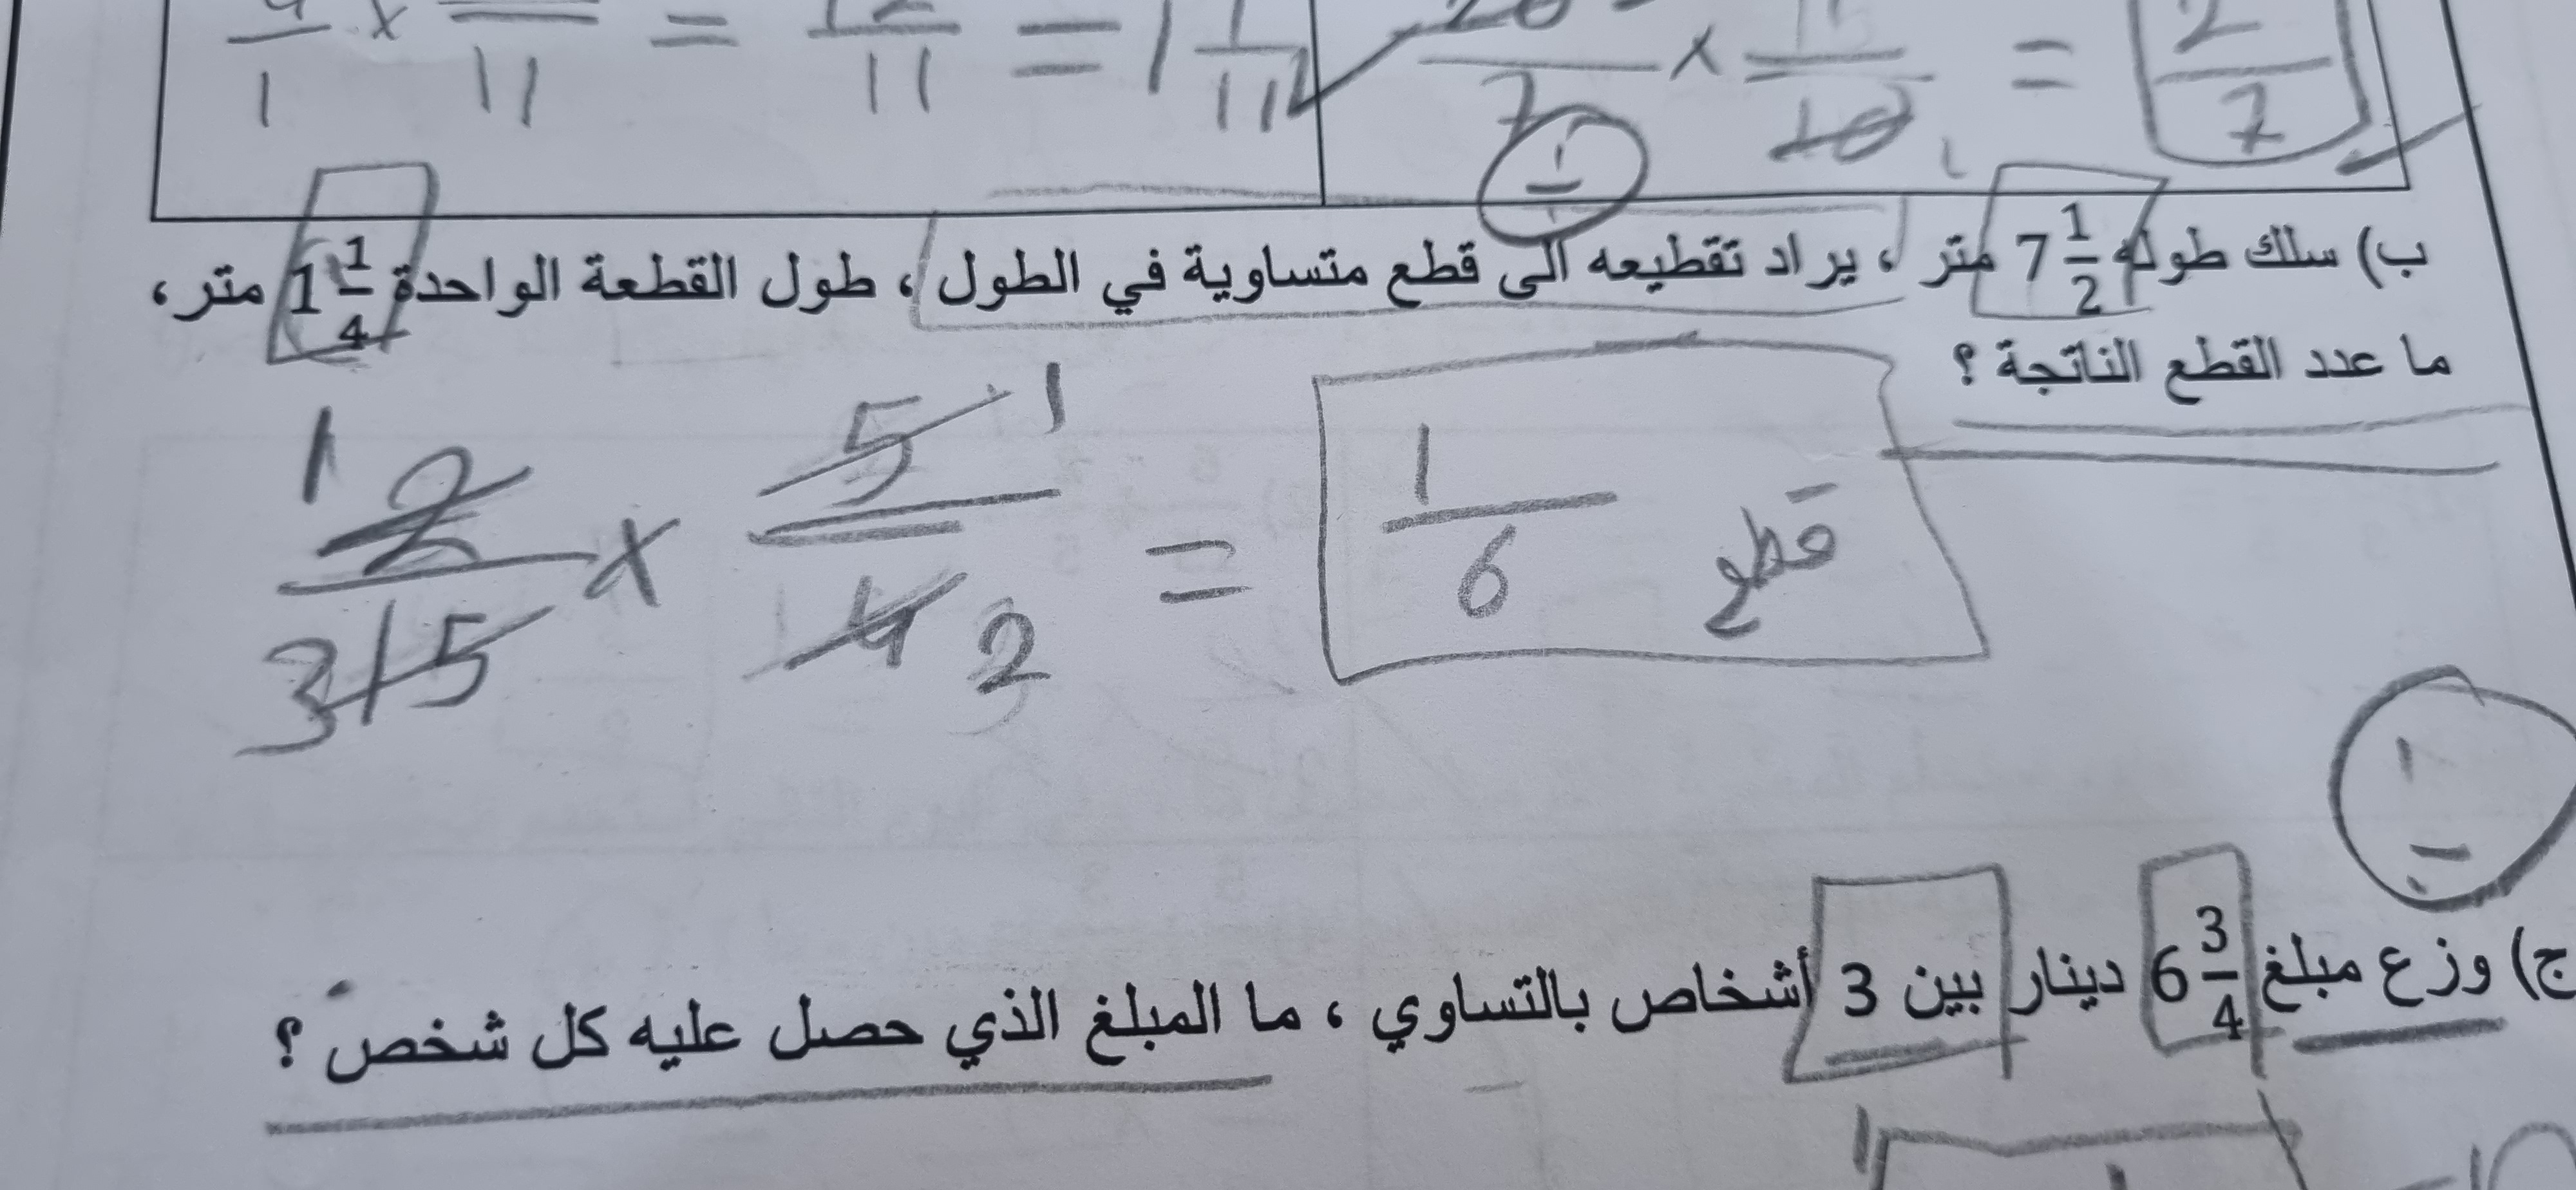 /1 × /11 = 12/11 = 1 1/11
/7 × /10 = 2/7
÷
ب) سلك طوله 7 1/2 متر ، يراد تقطيعه الى قطع متساوية في الطول ، طول القطعة الواحدة 1 1/4 متر،
ما عدد القطع الناتجة ؟
1 2/15 3 × 5/4 1 2 = 1/6 قطع
÷
ج) وزع مبلغ 6 3/4 دينار بين 3 أشخاص بالتساوي ، ما المبلغ الذي حصل عليه كل شخص ؟